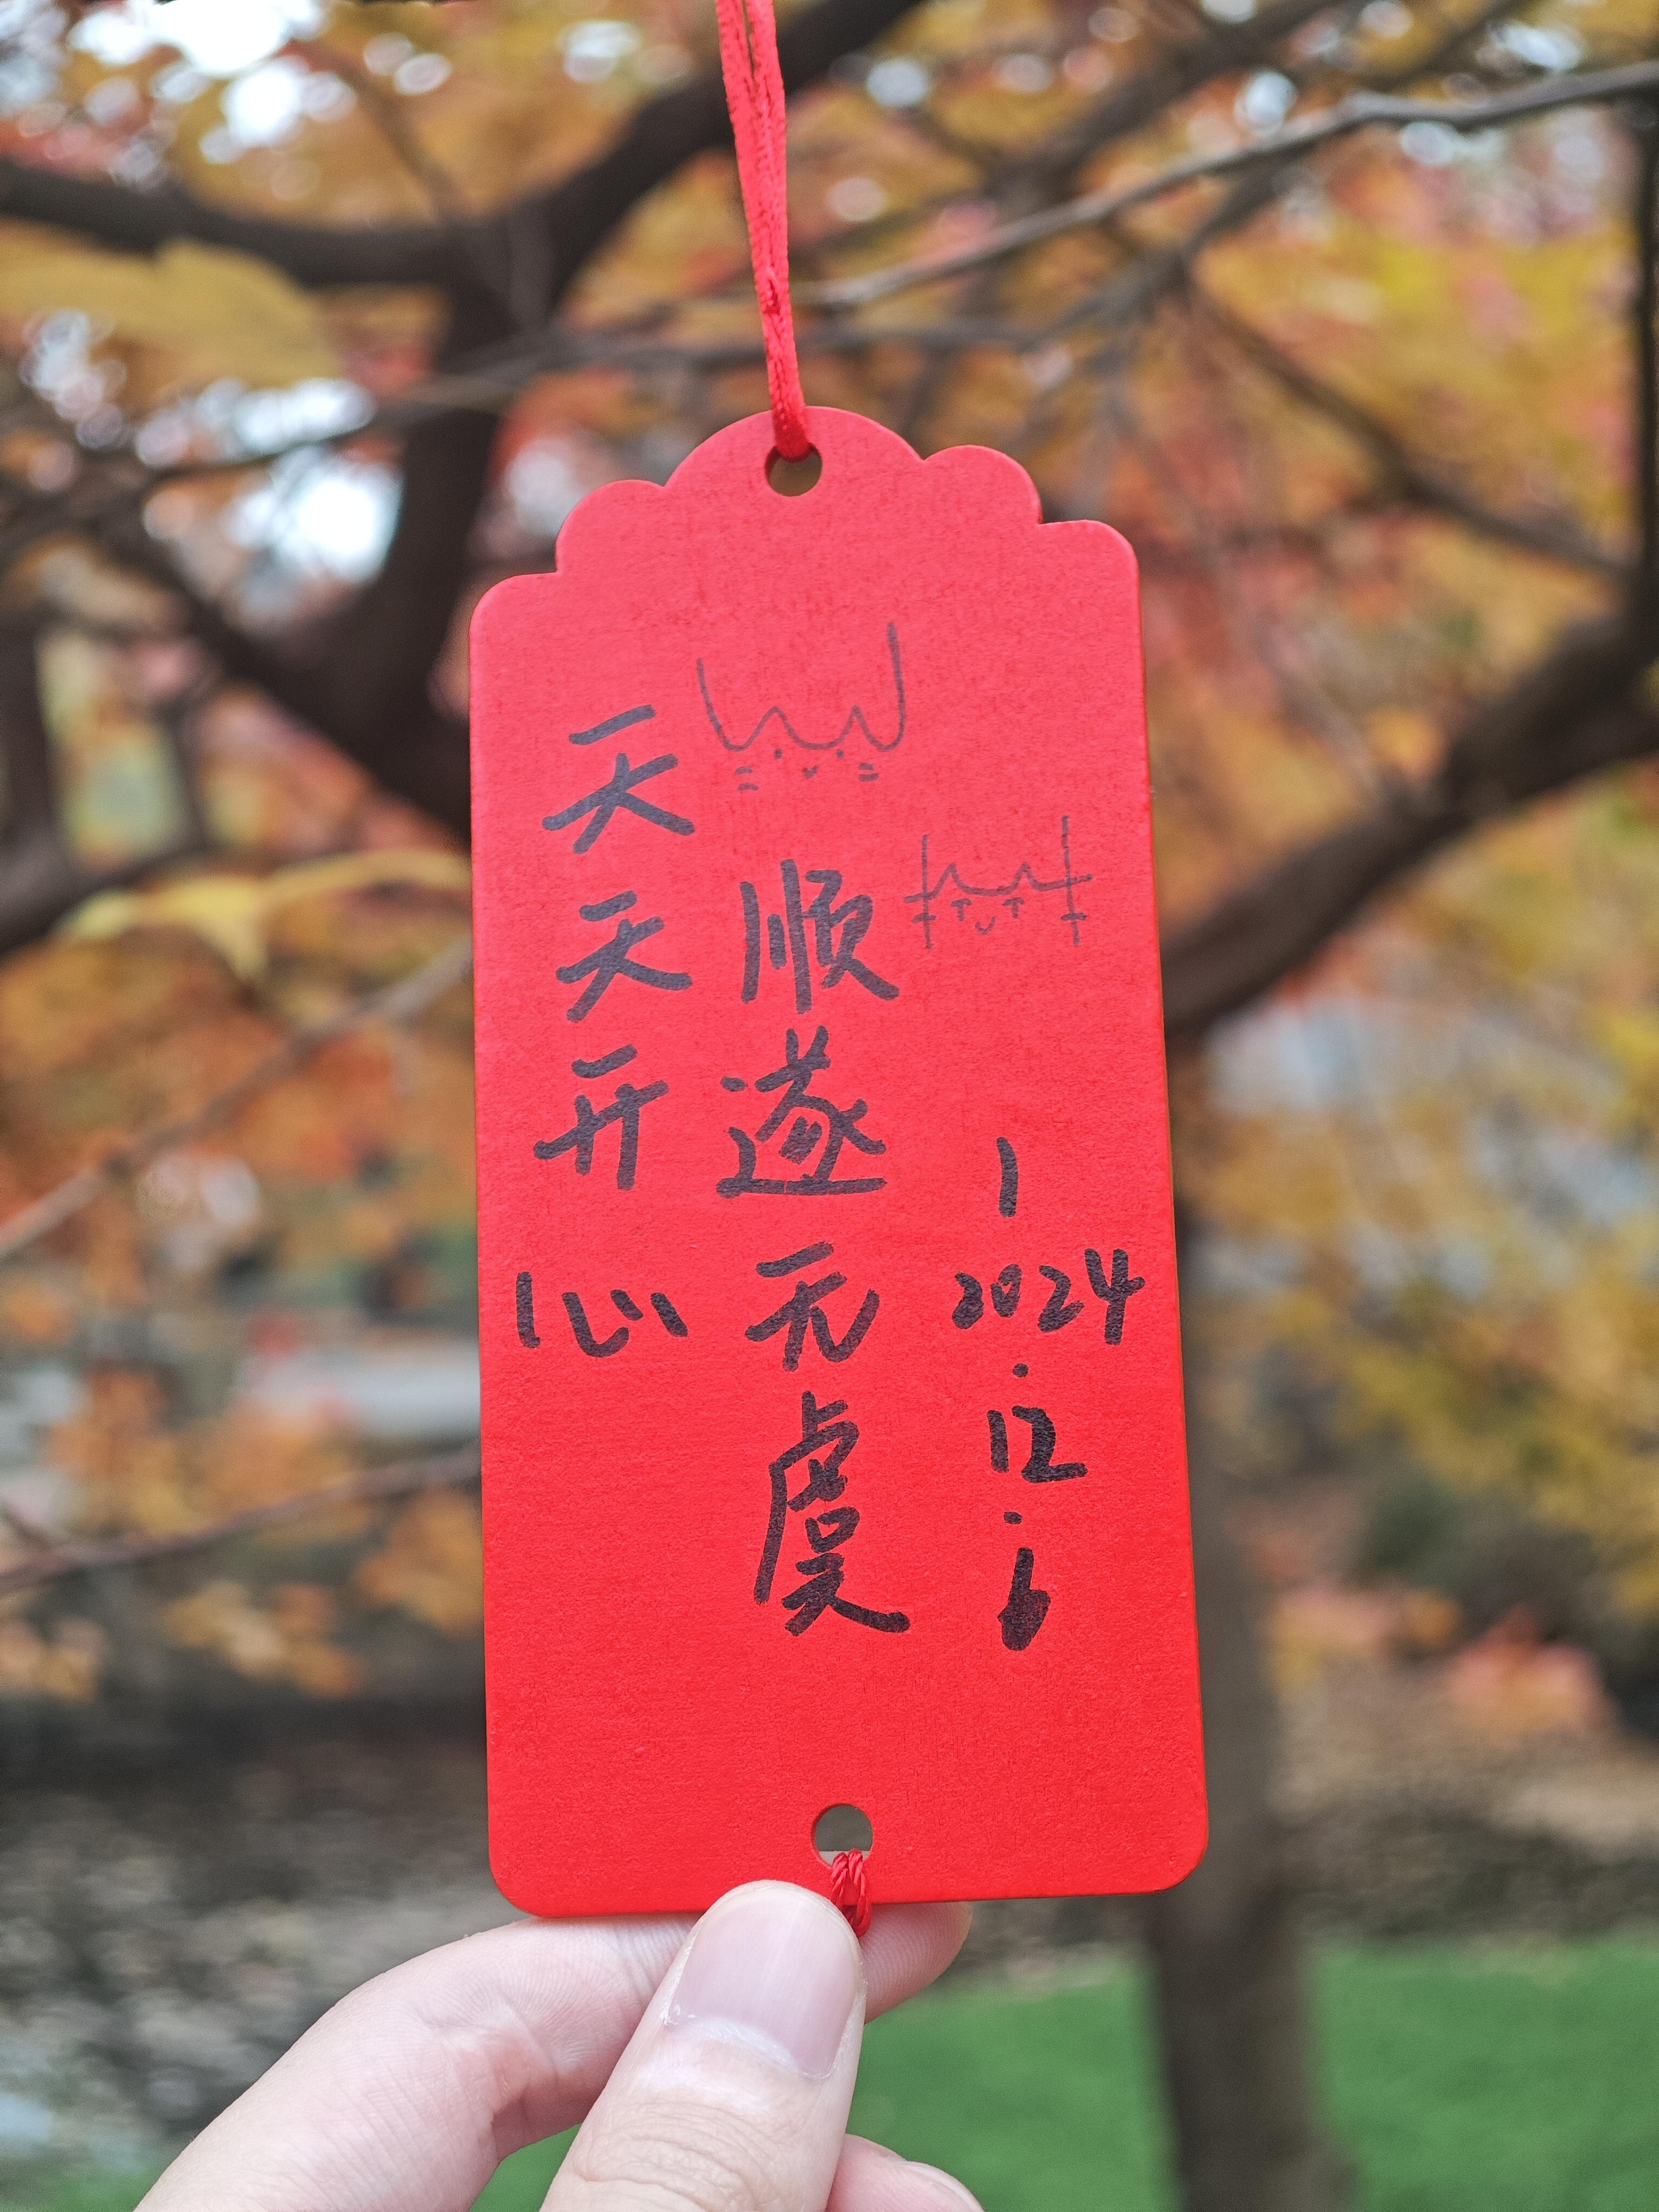 天天开心
顺遂无虞
1
2024.12.6